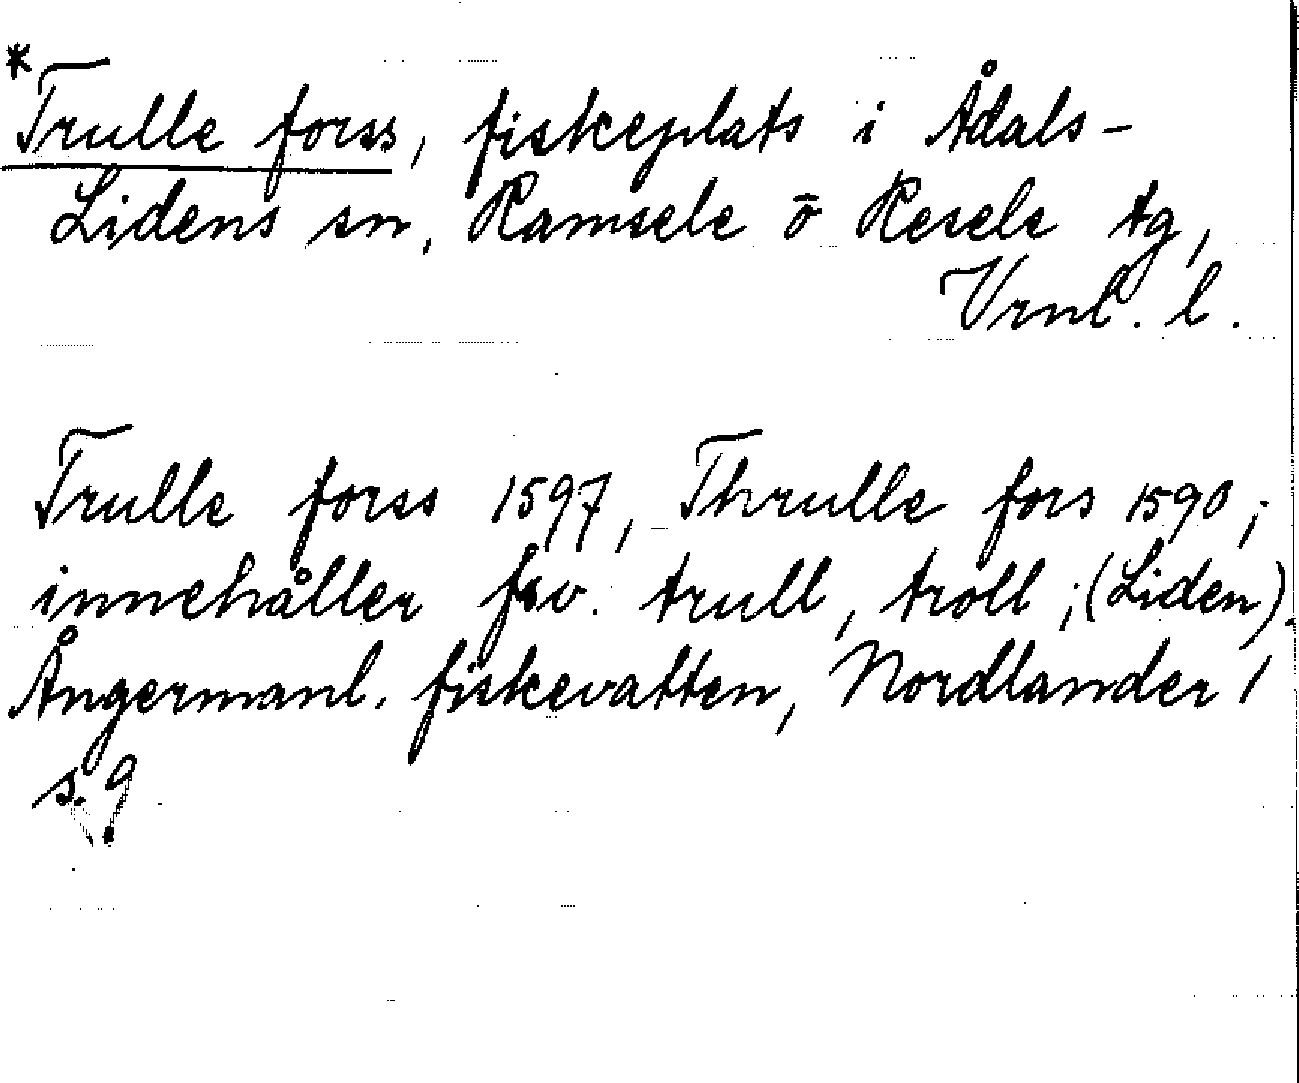 *
Trulle forss, fiskeplats i Ådals-
Lidens sn, Ramsele o Resele tg,
Vrnl. l.
Trulle forss 1597, Thrulle fors 1590;
innehåller fsv. trull, troll; (Liden).
Ångermanl. fiskevatten, Nordlander 1
s. 9